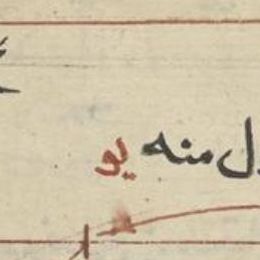 منه يو